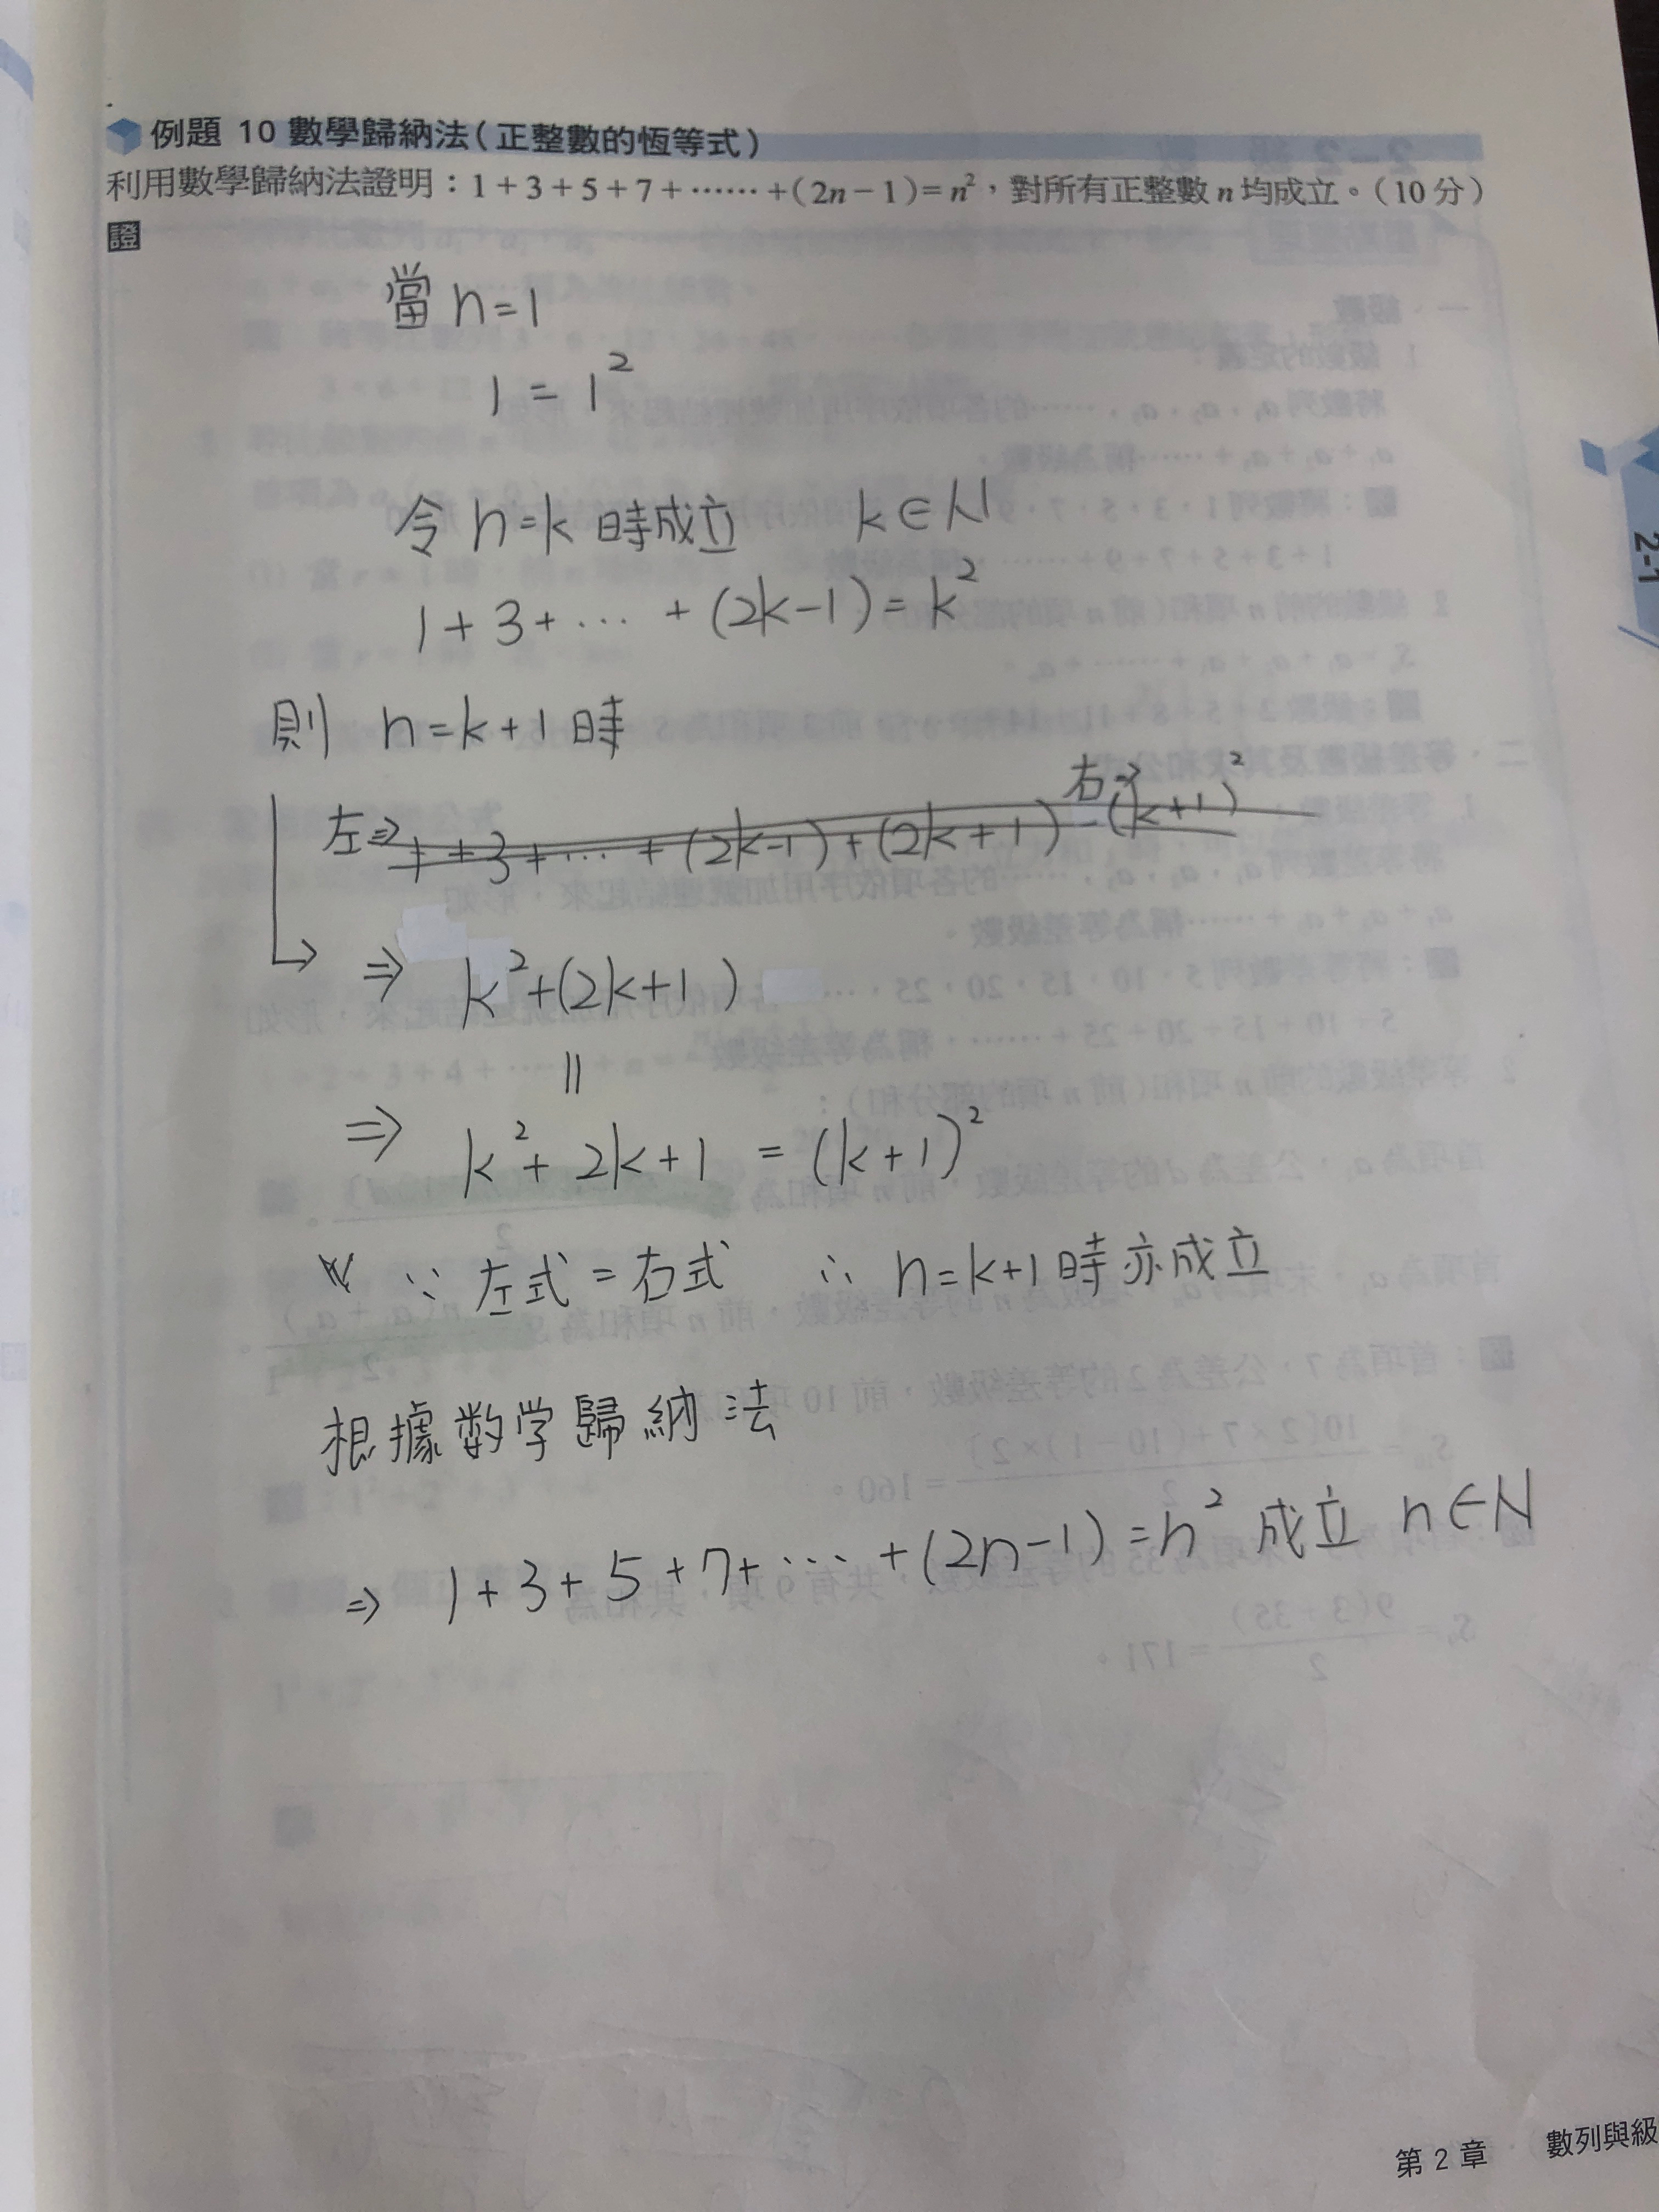 例題 10 數學歸納法(正整數的恆等式)
利用數學歸納法證明：1+3+5+7+……+(2n−1)=n²，對所有正整數 n 均成立。(10 分)
證
當 n=1
1 = 1²
令 n=k 時成立 k∈N
1+3+… +(2k−1)=k²
則 n=k+1 時
左⇒ 1+3+…+(2k−1)+(2k+1) 右⇒ (k+1)²
⇒ k²+(2k+1)
||
⇒ k²+2k+1 = (k+1)²
∵ 左式=右式 ∴ n=k+1 時亦成立
根據数学歸納法
⇒ 1+3+5+7+… +(2n−1)=n² 成立 n∈N
2-1
第 2 章 數列與級